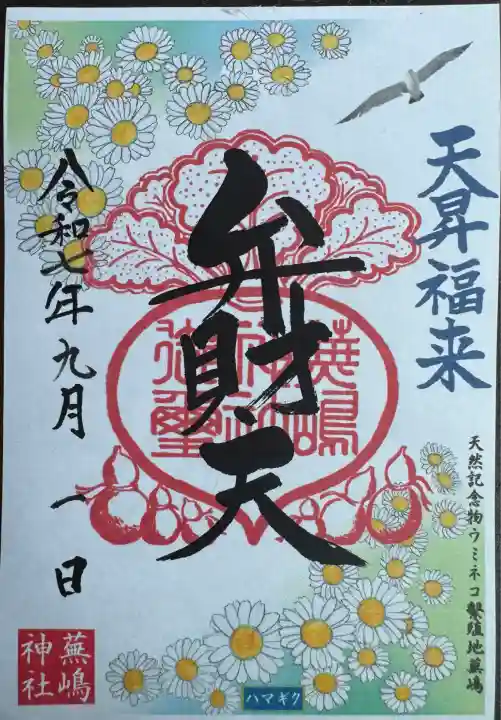 天昇福来
天然記念物ウミネコ繁殖地蕪嶋
弁財天
蕪嶋
神社
御璽
令和七年九月一日
蕪嶋
神社
ハマギク